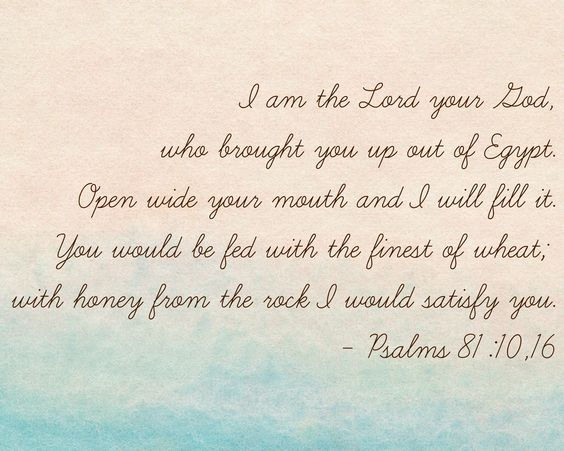 I am the Lord your God,
who brought you up out of Egypt.
Open wide your mouth and I will fill it.
You would be fed with the finest of wheat;
with honey from the rock I would satisfy you.
- Psalms 81 :10,16